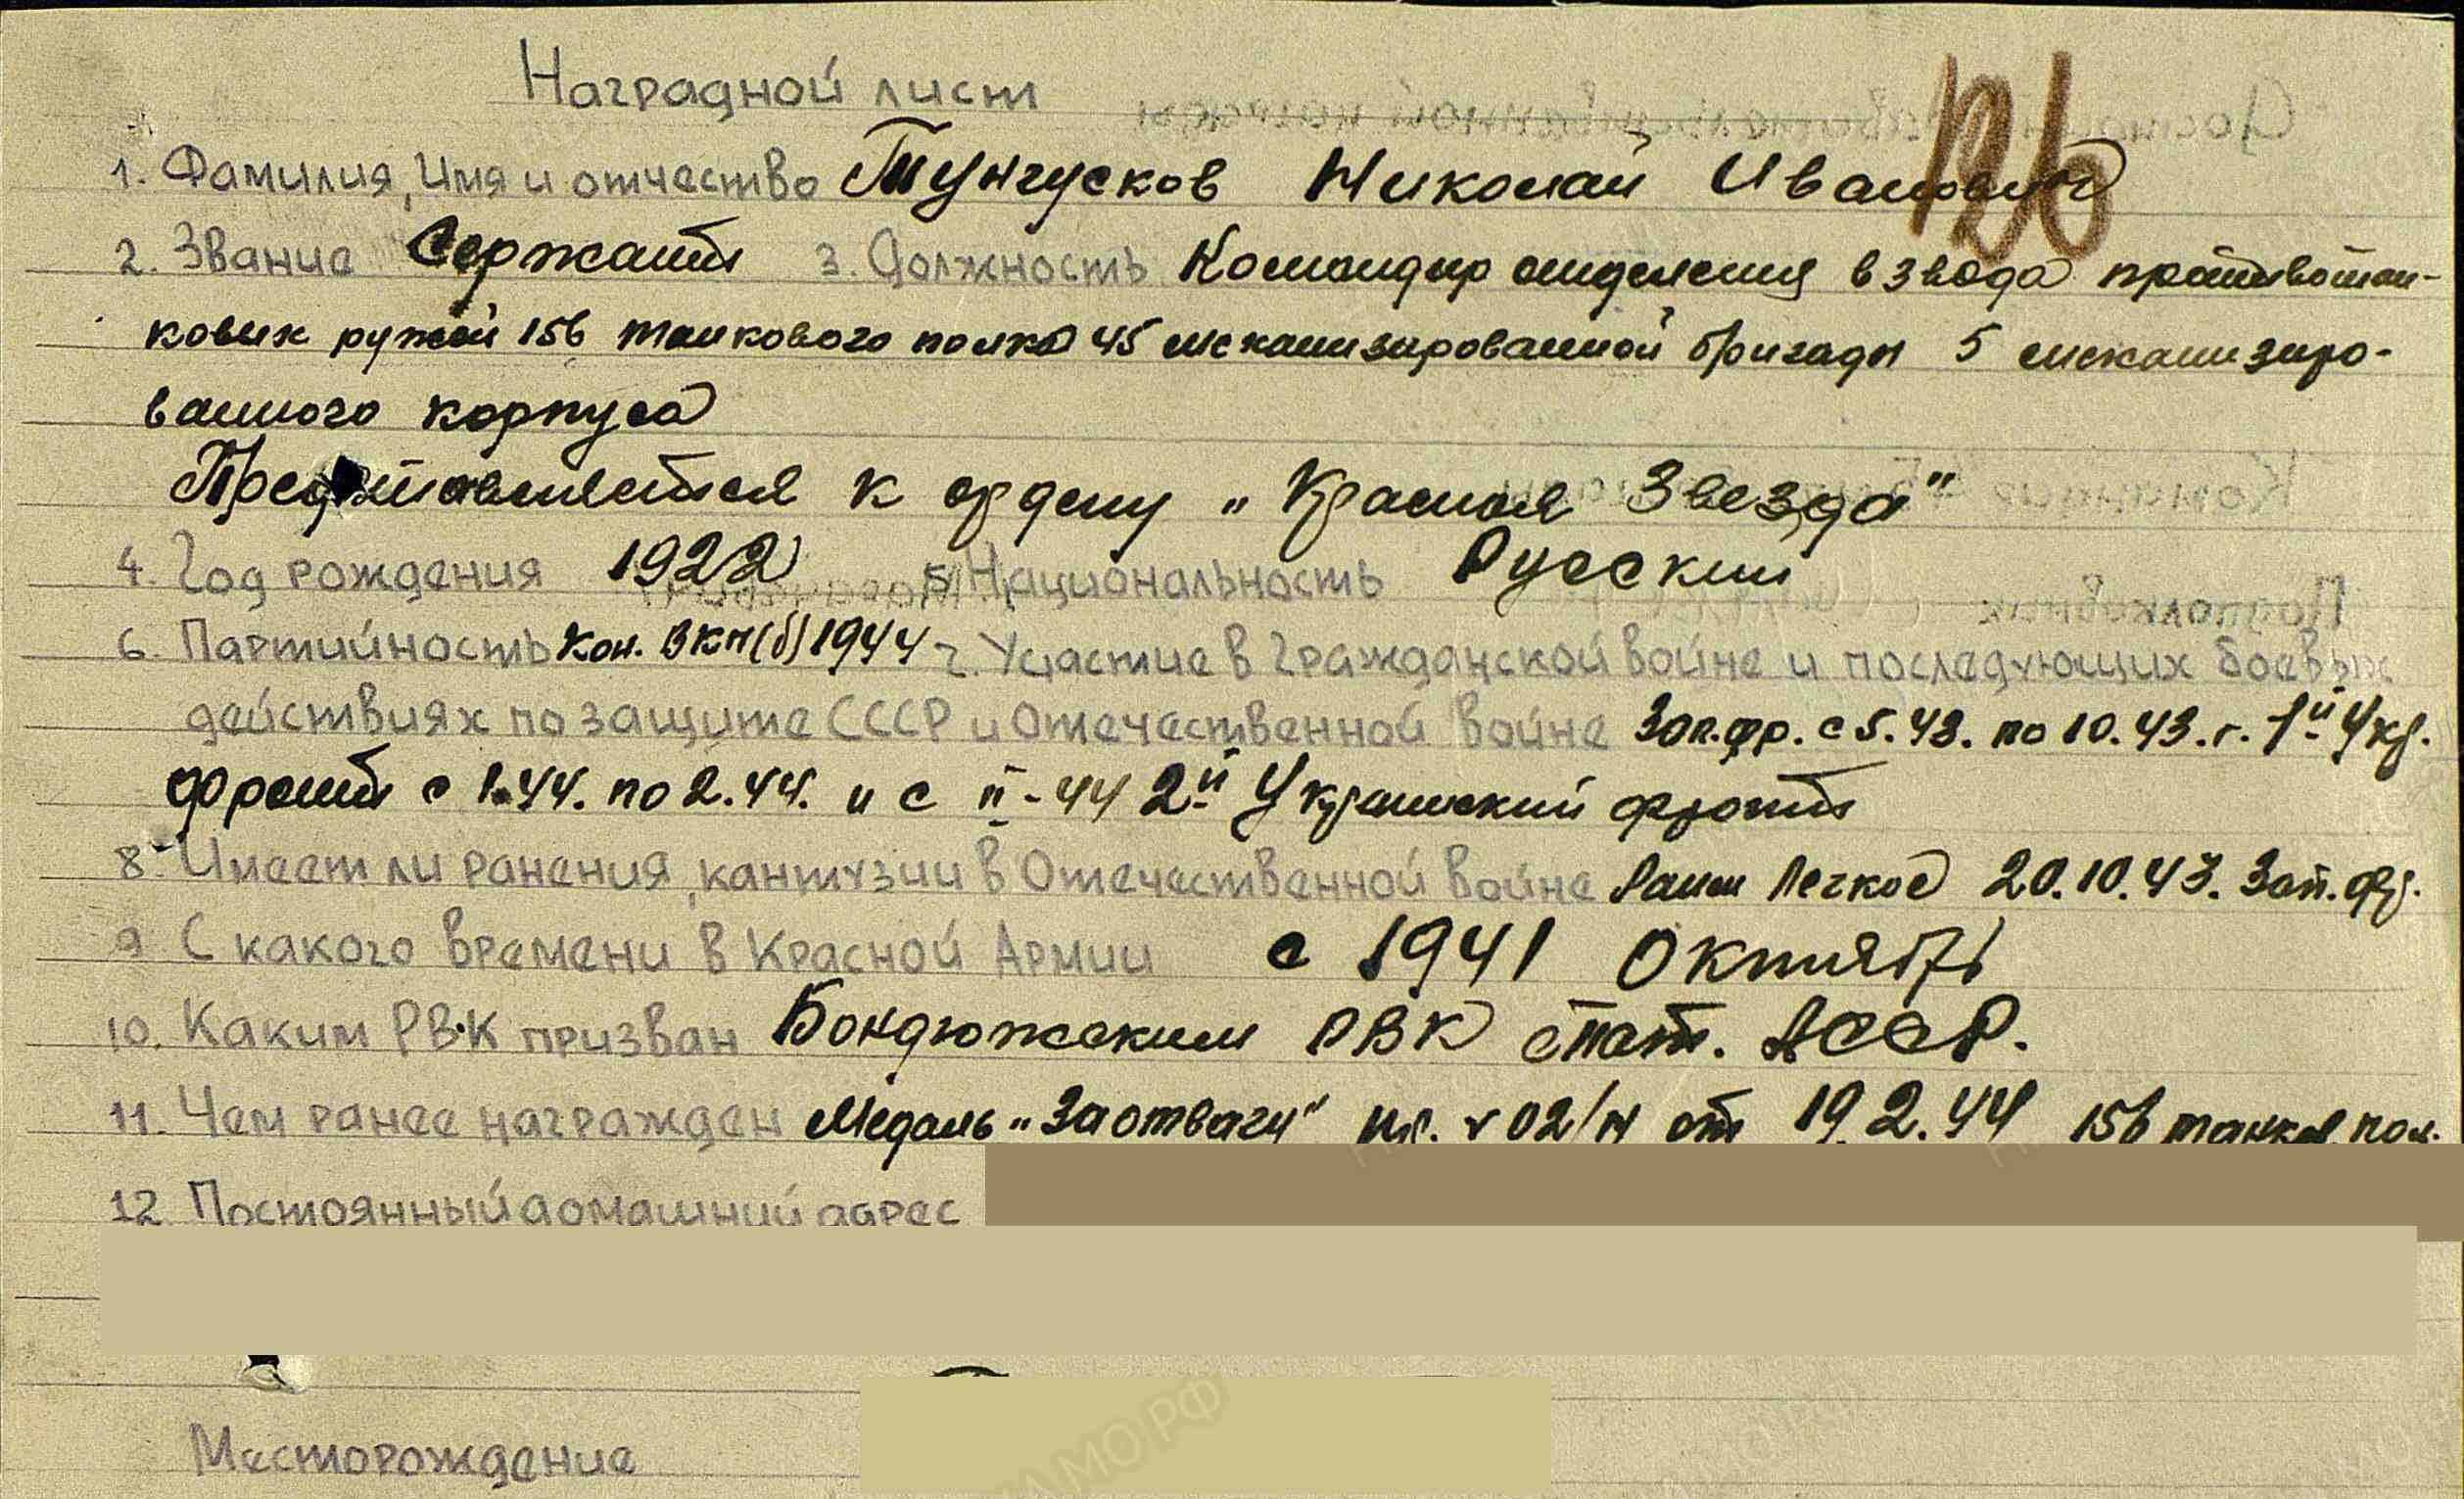 Наградной лист
126
1. Фамилия, Имя и отчество Тунгусков Николай Иванович
2. Звание Сержант 3. Должность Командир отделения взвода противотан-
ковых ружей 156 танкового полка 45 механизированной бригады 5 механизиро-
ванного корпуса
Представляется к ордену "Красная Звезда"
4. Год рождения 1922 5. Национальность Русский
6. Партийность Кан. ВКП(б) 1944 7. Участие в Гражданской войне и последующих боевых
действиях по защите СССР и Отечественной войне Зап.фр. с 5.43. по 10.43.г. 1й Укр.
фронт с 1.44. по 2.44. и с 2й Украинский фронт
8. Имеет ли ранения, кантузии в Отечественной войне Ранен Легкое 20.10.43. Зап.фр.
9. С какого времени в Красной Армии с 1941 Октябрь
10. Каким РВК призван Бондюжским РВК Тат. АССР.
11. Чем ранее награжден Медаль "За отвагу" Пр. 02/н от 19.2.44 156 танков. пол.
12. Постоянный домашний адрес
Месторождение